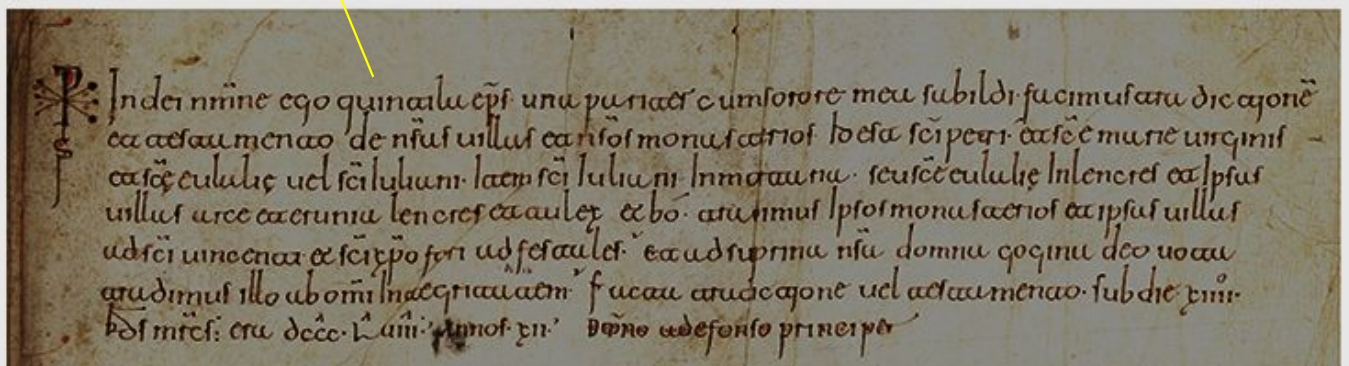 In dei nm̄ine ego quintila ep̄s una pariter cum sorore mea subildi facimus tradictjonē
et testamento de nr̄as uillas et nr̄os monasterios Id est sc̄i petri et sc̄e marie uirginis
et sc̄ę eulalię uel sc̄i Iuliani Item sc̄i Iuliani In seu sc̄e eulalię In lencres et Ipsas
uillas arce et erunia lencres et aulex et tradimus Ipsos monasterios et ipsas uillas
ad sc̄i uincenti et sc̄i xp̄o fori ad et ad suprina nr̄a domna gogina deo uota
tradimus illo ab om̄i Integritatem facta uel testamento sub die xiiii
kds mr̄cs: era dccc Annos xii Dom̄no adefonso principe